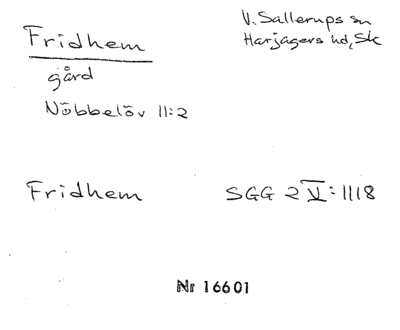 Fridhem
V. Sallerups sn
Harjagers hd, Sk
gård
Nöbbelöv 11:2
Fridhem
SGG 2 V:1118
Nr 16601